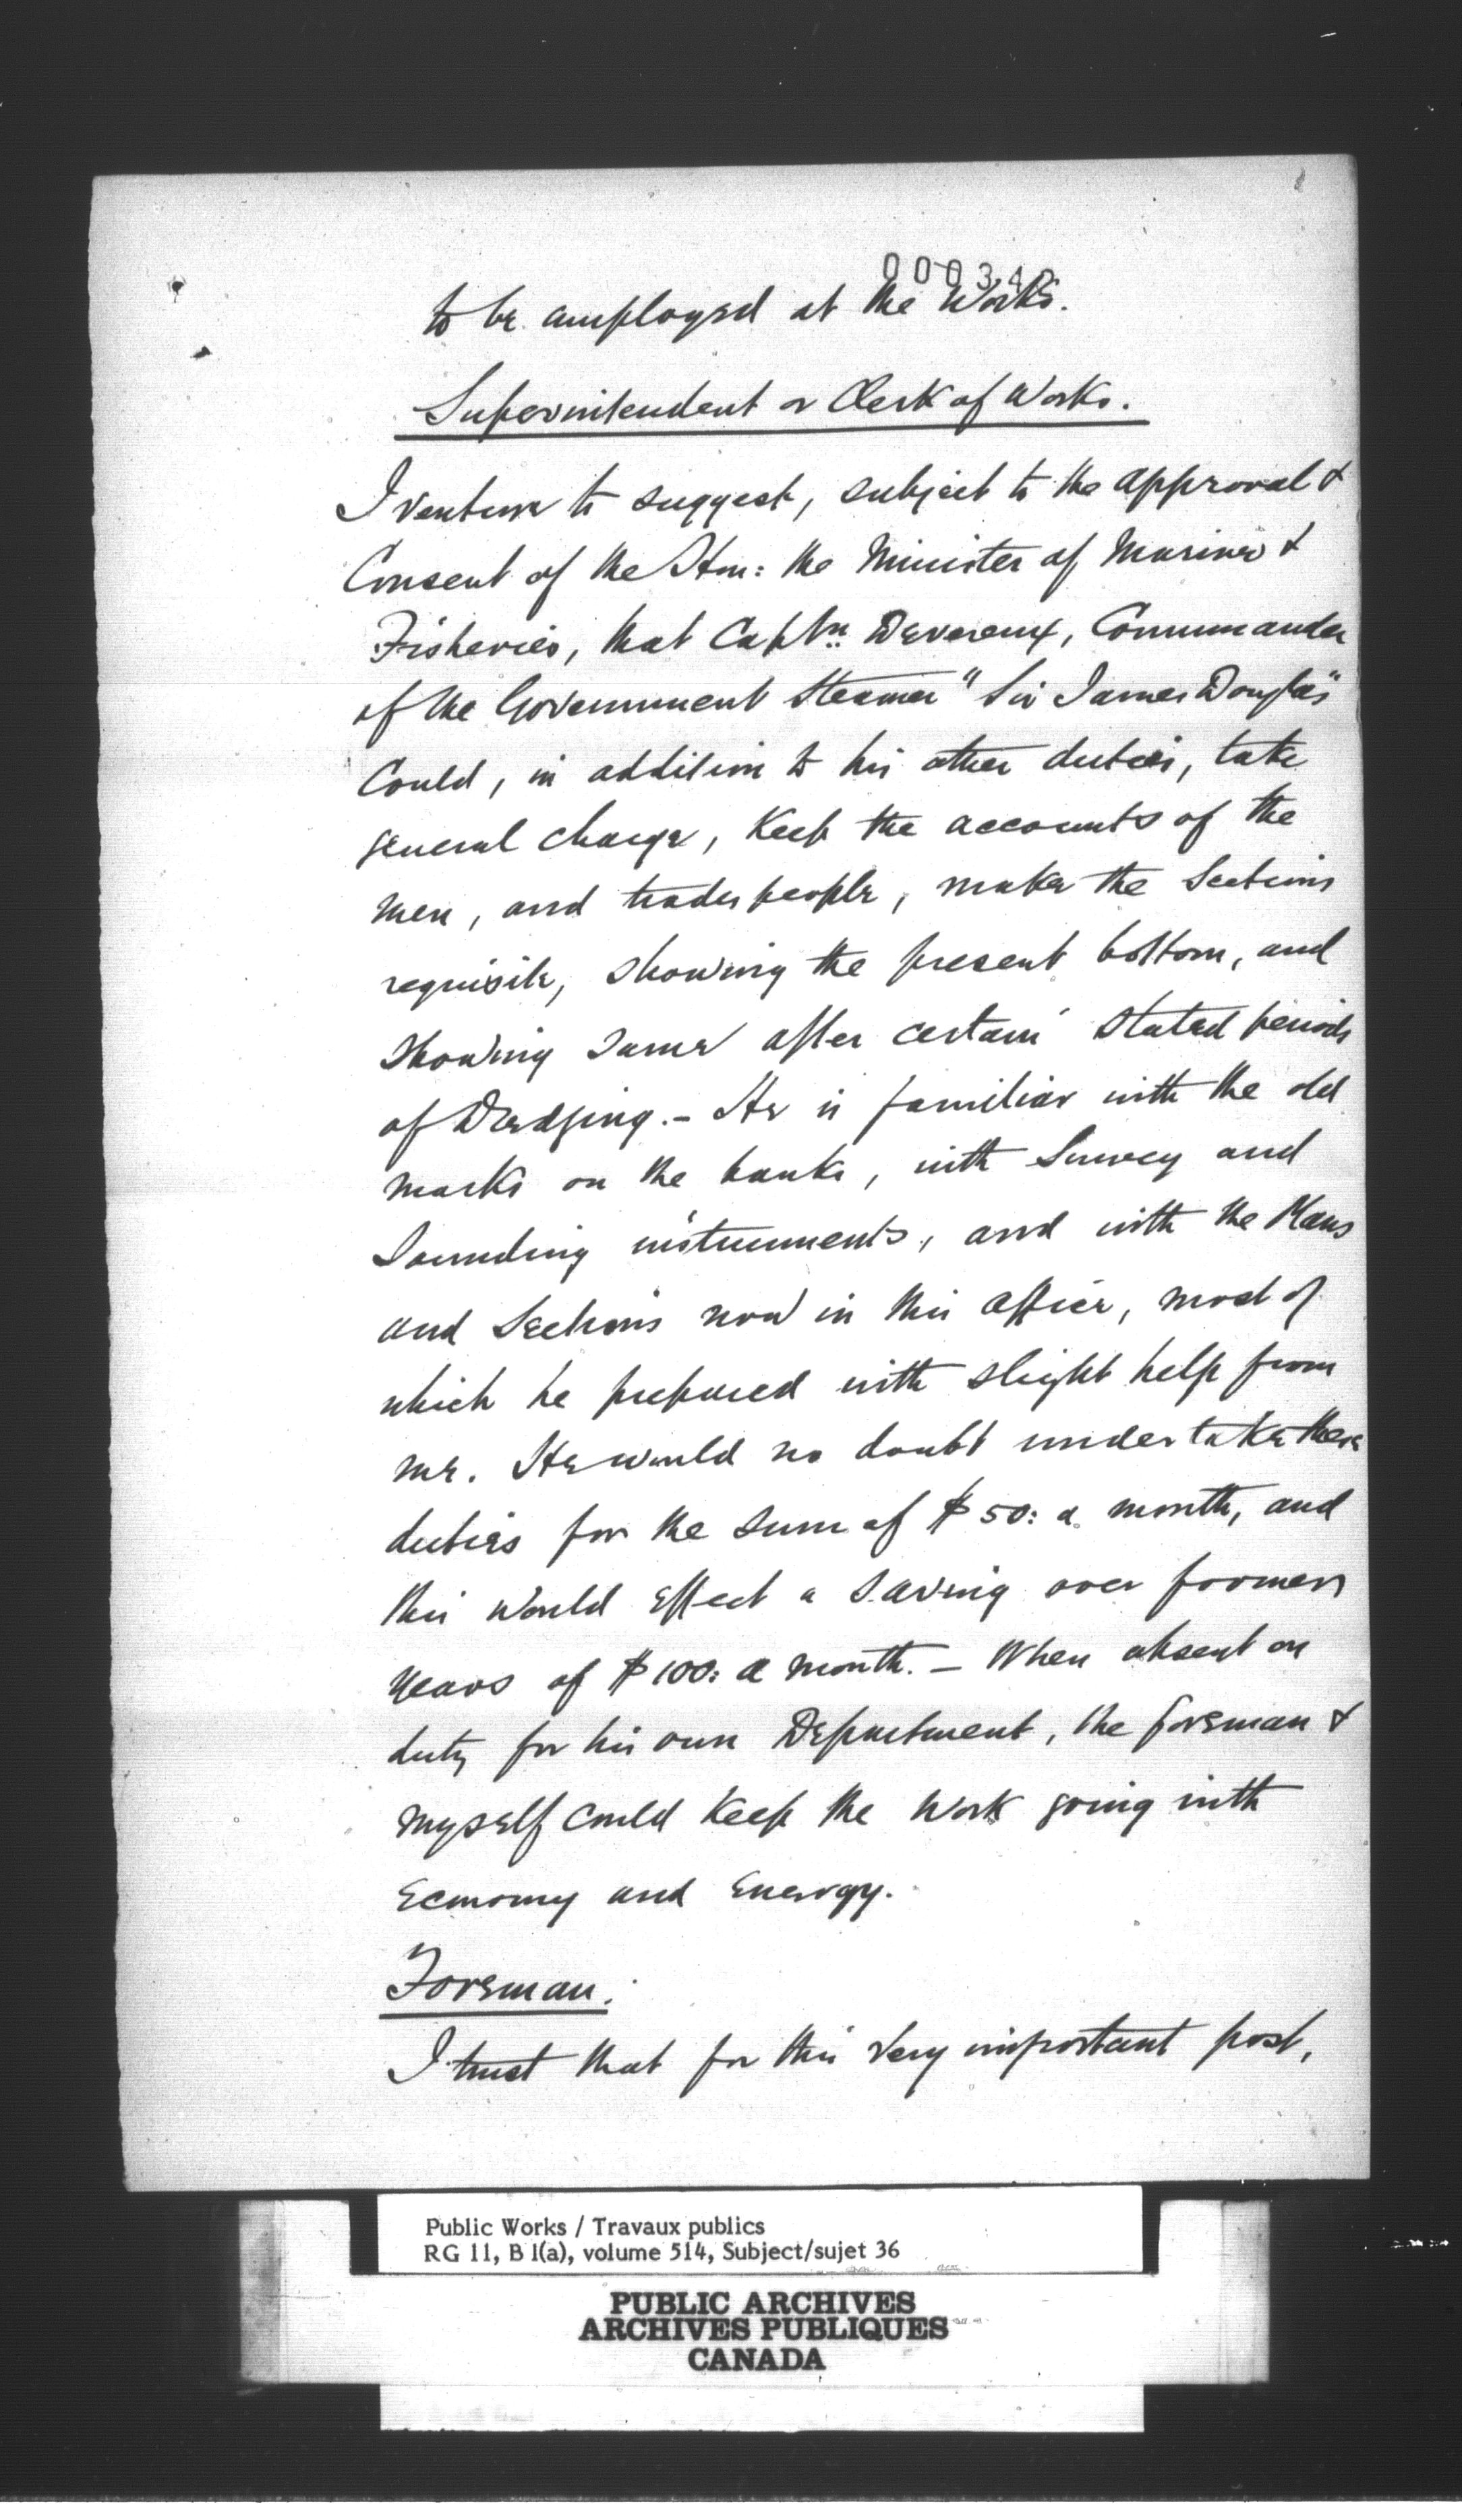 to be employed at the Works.
Superintendent or Clerk of Works.
I venture to suggest, subject to the approval &
Consent of the Hon: the Minister of Marine &
Fisheries, that Captn. Devereux, Commander
of the Government Steamer "Sir James Douglas"
Could, in addition to his other duties, take
general charge, Keep the accounts of the
men, and tradespeople, make the Sections
requisite, showing the present bottom, and
showing same after certain stated periods
of Dredging. - He is familiar with the old
marks on the banks, with Survey and
Sounding instruments, and with the Plans
and Sections now in this Office, most of
which he prepared with slight help from
me. He would no doubt undertake these
duties for the sum of $50: a month, and
this would effect a saving over former
years of $100: a month. - When absent on
duty for his own Department, the foreman &
myself could Keep the Work going with
Economy and Energy.
Foreman.
I trust that for this very important post,
Public Works / Travaux publics
RG 11, B 1(a), volume 514, Subject/sujet 36
PUBLIC ARCHIVES
ARCHIVES PUBLIQUES
CANADA